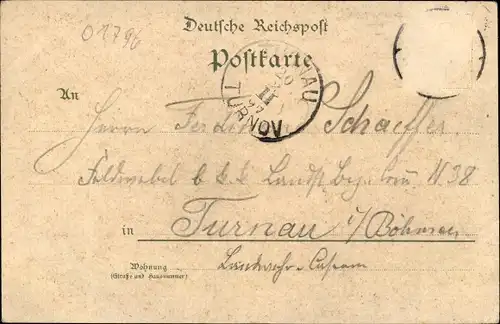 01796
Deutsche Reichspost
Postkarte
TURNAU
TURNOV
An
Herrn Ferdinand Schaeffer
Feldwebel b k. k. Landst. Bez. N 38
in Turnau i/Böhmen
Wohnung
(Straße und Hausnummer)
Landwehr-Casern